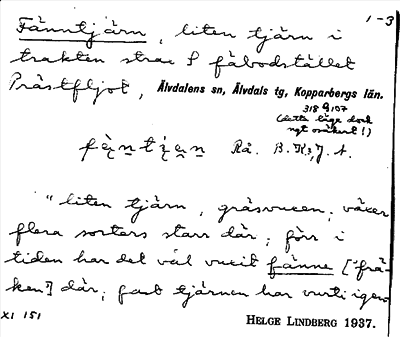 1-3
Fänntjärn, liten tjärn i
trakten strax S fäbodstället
Prästfljot, Älvdalens sn, Älvdals tg, Kopparbergs län.
318 107
(detta läge dock
ngt osäkert!)
Rå. B. K:s, J. A.
"liten tjärn, gräsvuxen; växer
flera sorters starr där; förr i
tiden har det väl vuxit fänne ['frä-
ken'] där; fast tjärnen har vuxit igen
XI 151
HELGE LINDBERG 1937.